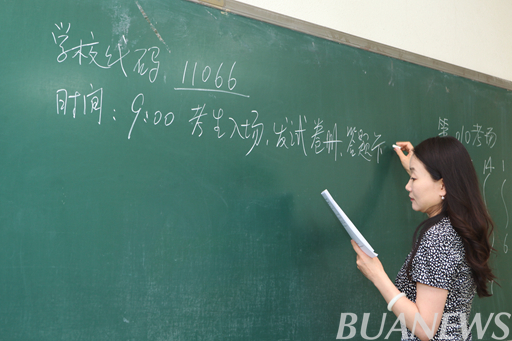 学校代码 11066
时间：9:00 考生入场，发试卷册、答题卡
第010考场
BUANEWS